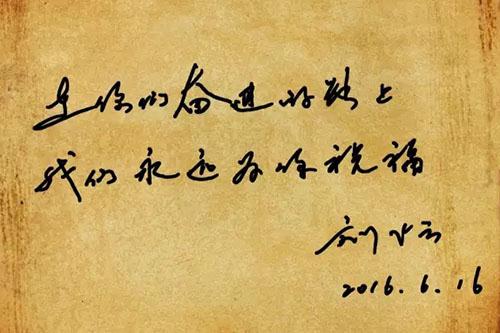 在你们奋进的路上
我们永远为你祝福
刘云
2016.6.16